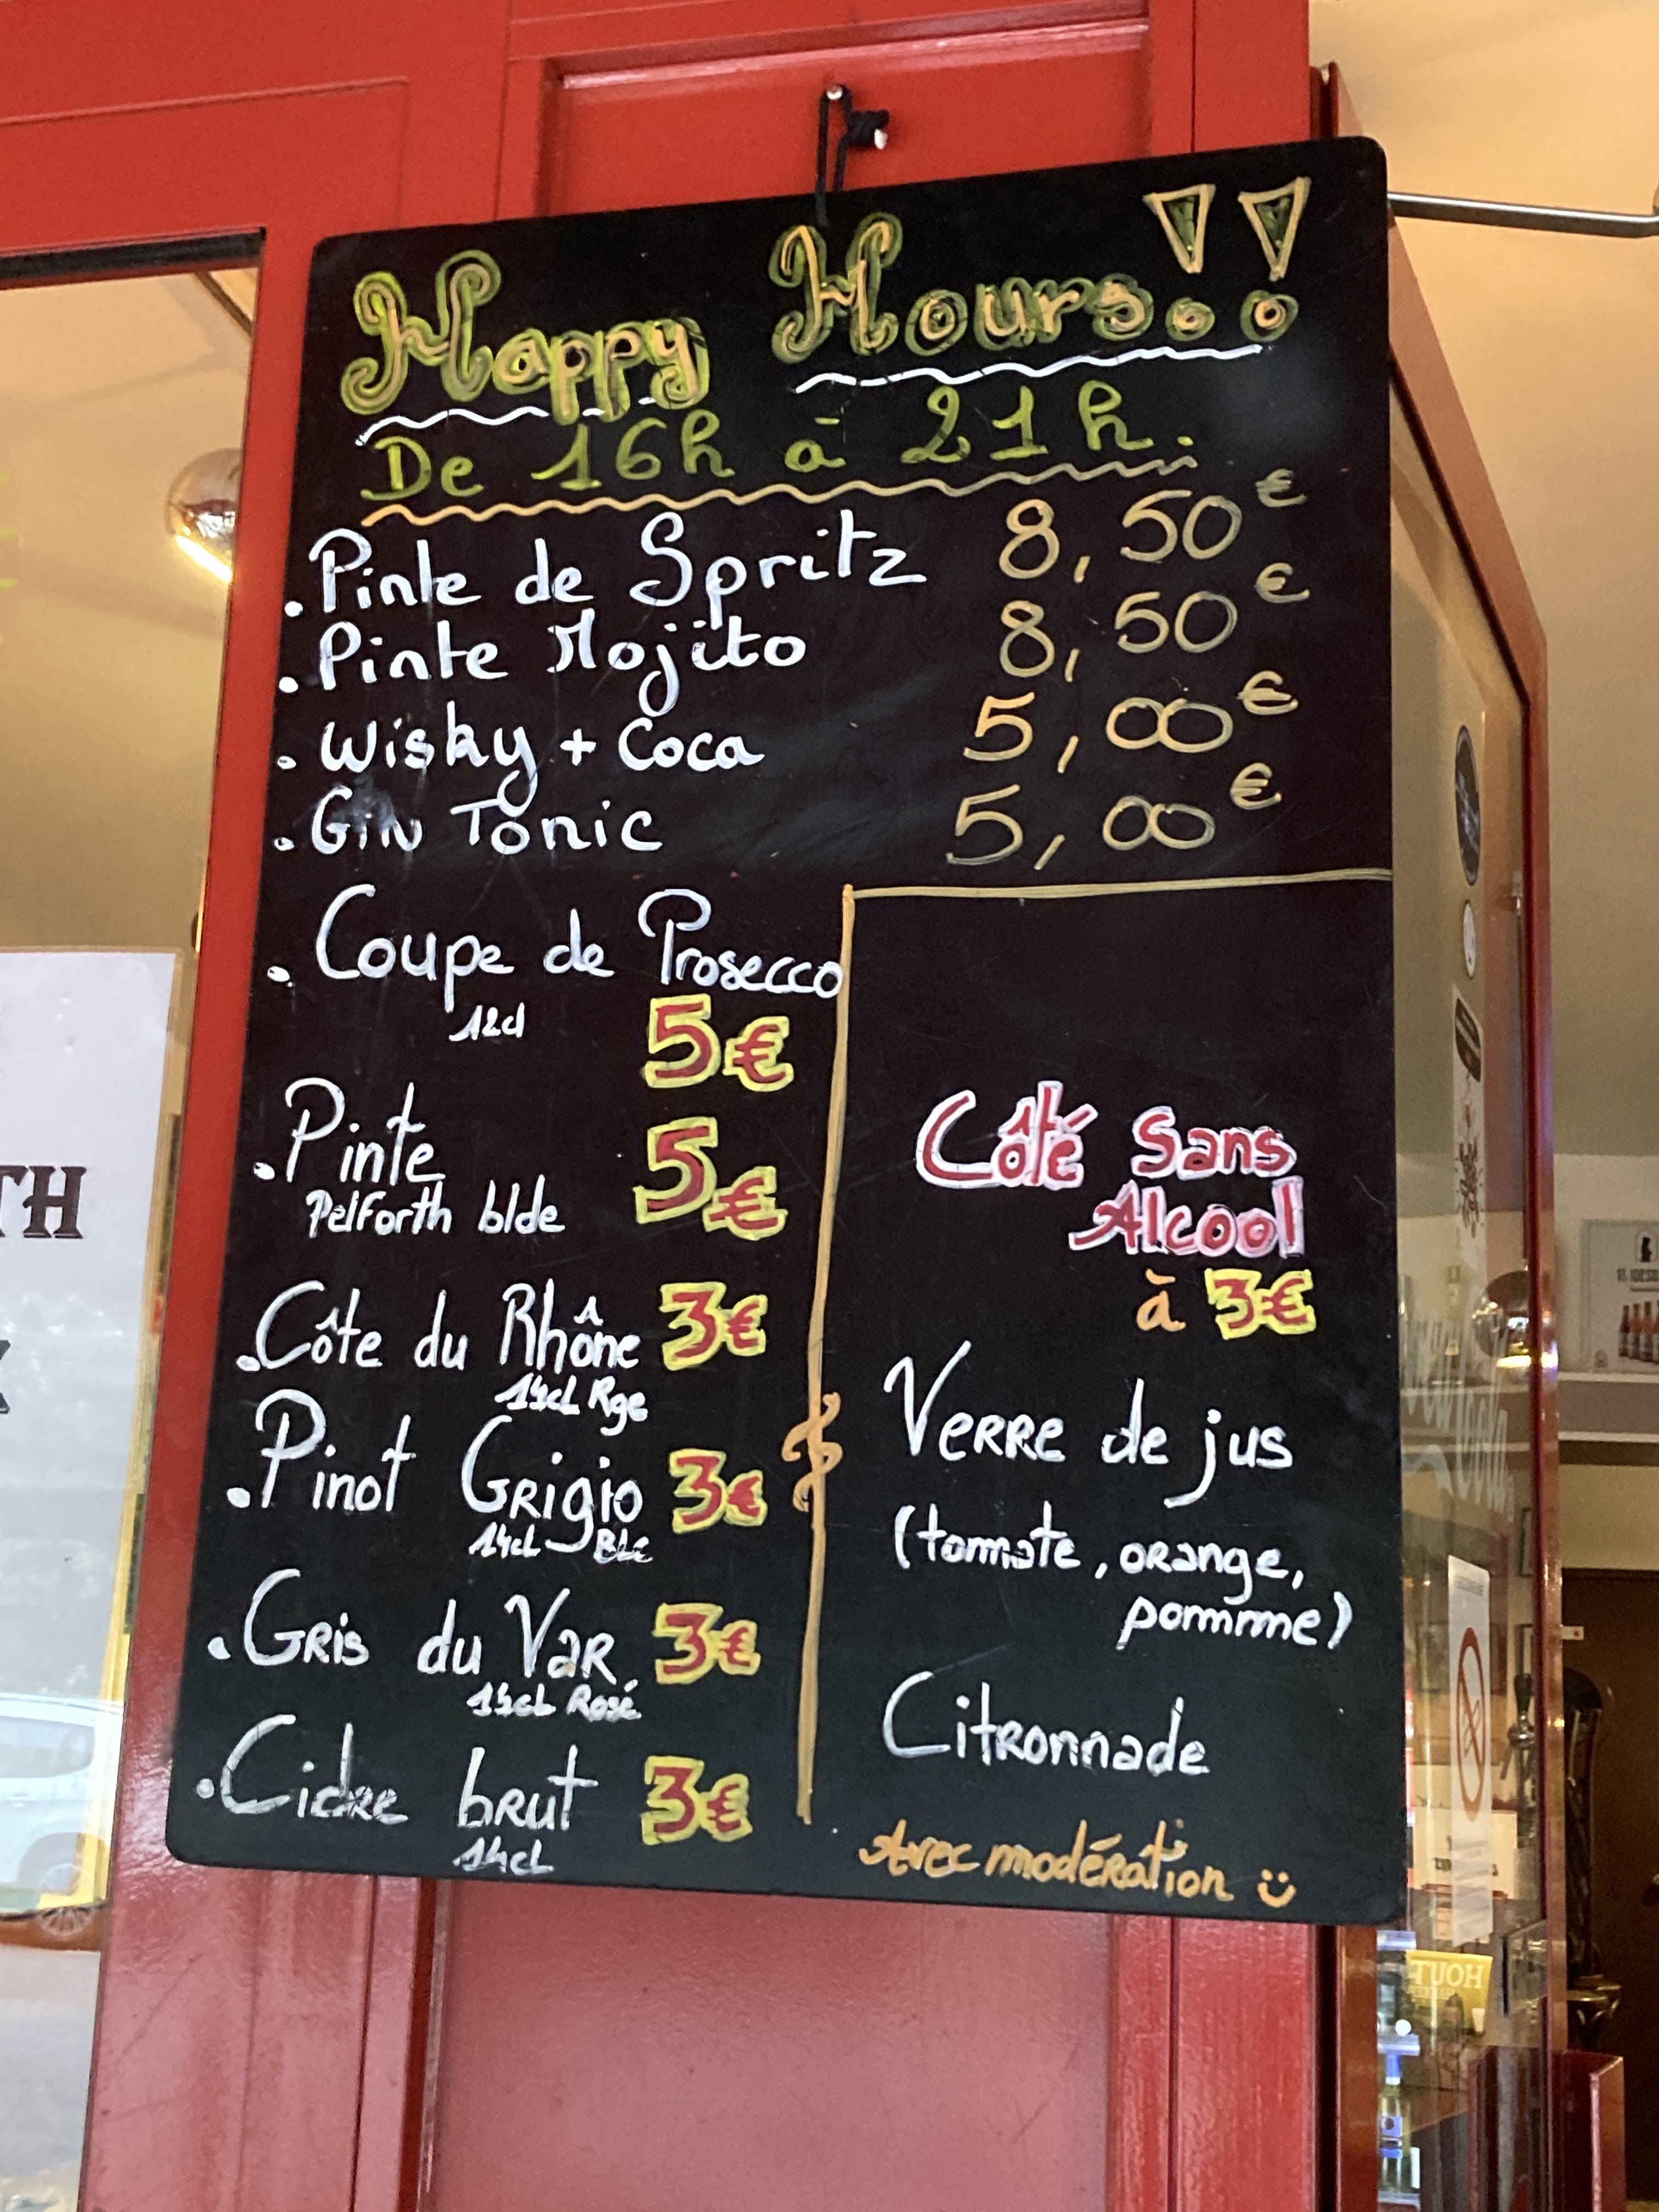 Happy Hours!!
De 16h à 21h.
. Pinte de Spritz 8,50€
. Pinte Mojito 8,50€
. Wisky + Coca 5,00€
. Gin Tonic 5,00€
. Coupe de Prosecco
12cl 5€
. Pinte 5€
Pelforth blde
. Côte du Rhône 3€
14cl Rge
. Pinot Grigio 3€
14cl Blc
. Gris du Var 3€
14cl Rosé
. Cidre brut 3€
14cl
Côté Sans
Alcool
à 3€
Verre de jus
(tommate, orange,
pomme)
Citronnade
Avec modération
TH
HOUT